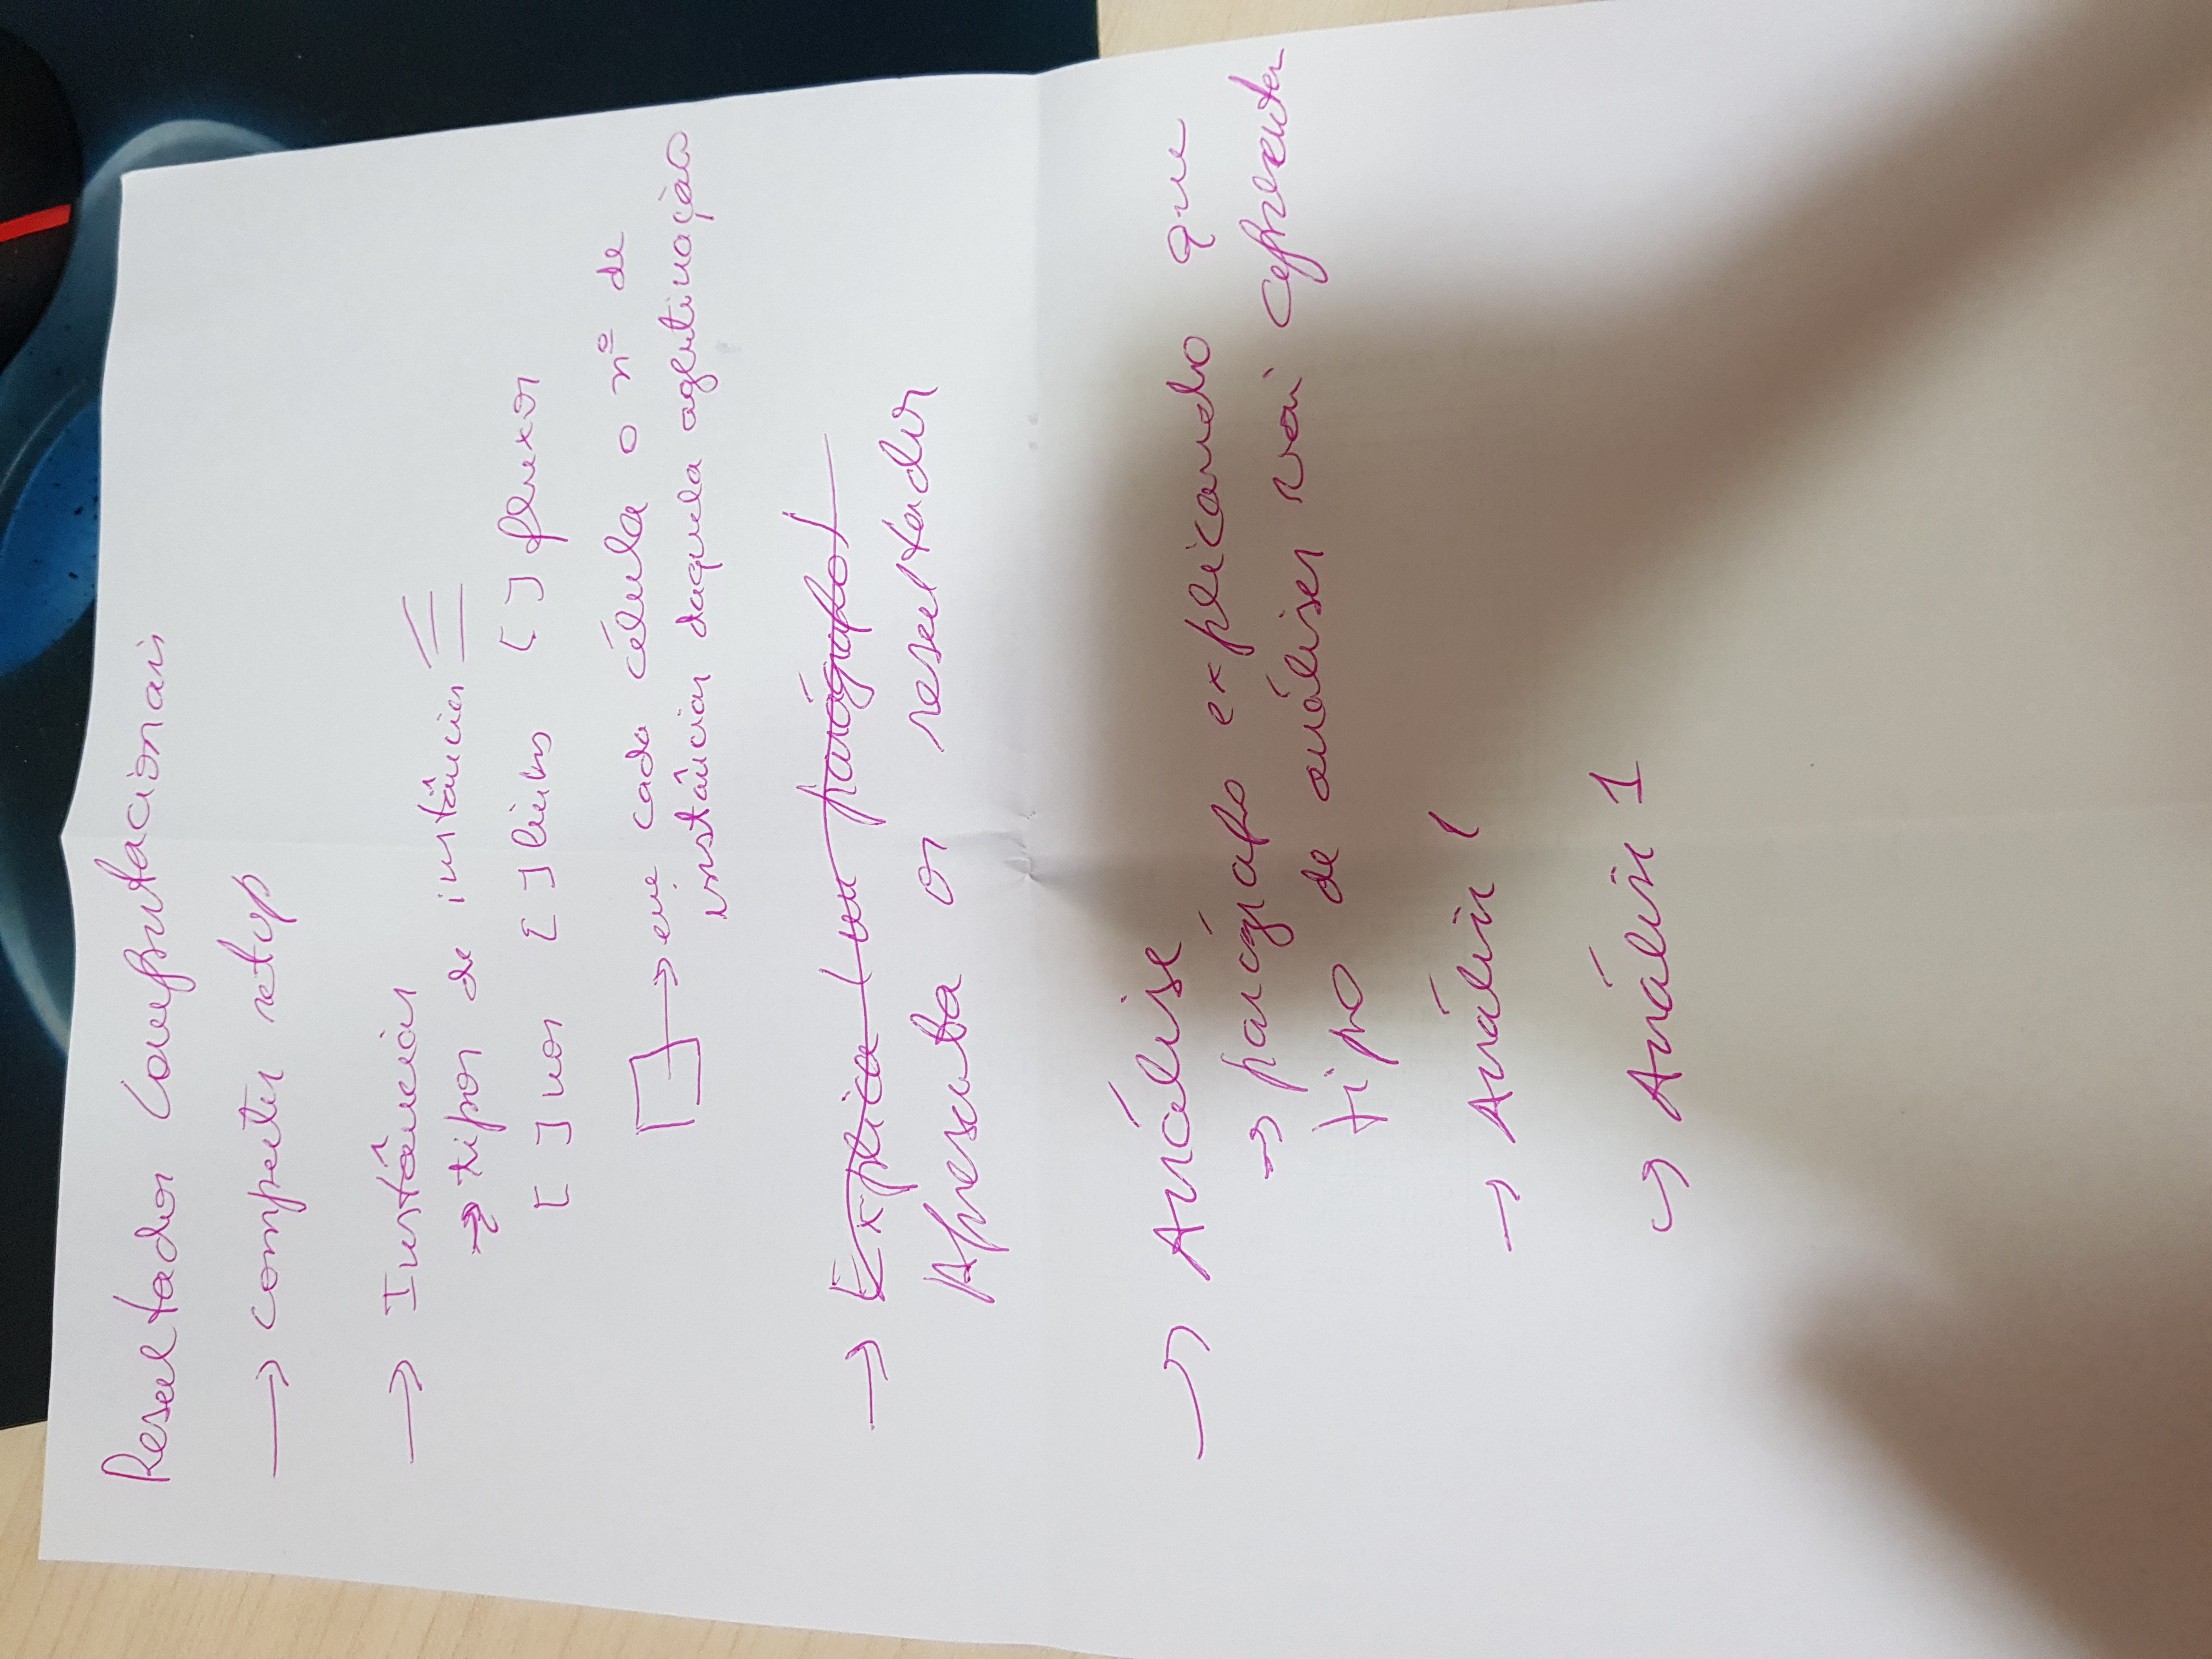 Resultados Computacionais
→ computer setup
→ Instâncias
→ tipos de instâncias
[ ] nos [ ] links [ ] fluxos
→ em cada célula o nº de
instâncias daquela aglutinação
→ Explica (um parágrafo)
Apresenta os resultados
→ Análise
→ parágrafo explicando que
tipo de análises vai apresentar
→ Análise 1
→ Análise 1